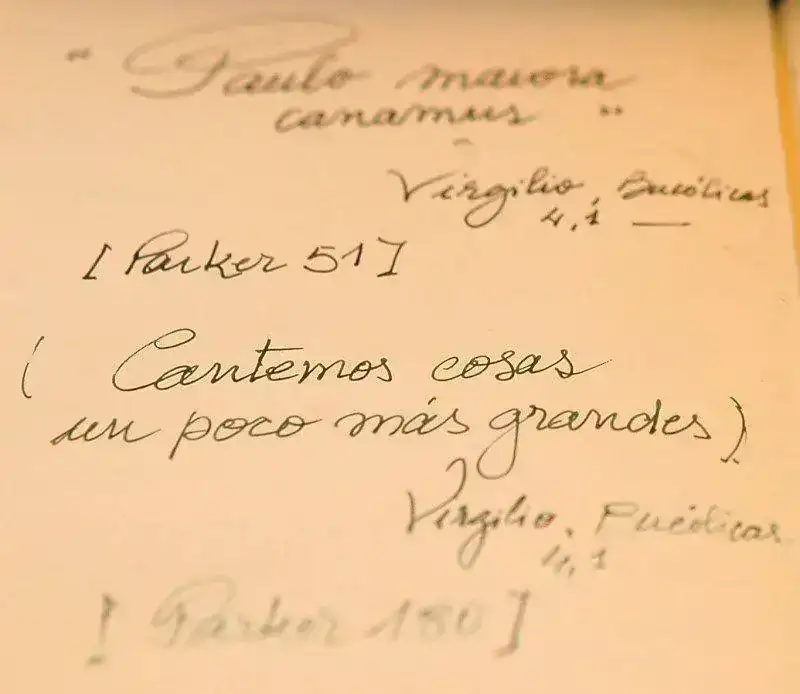 " Paulo maiora
canamus "
Virgilio, Bucólicas
4,1 —
[Parker 51]
( Cantemos cosas
un poco más grandes)
Virgilio, Bucólicas
4,1
[ Parker 180 ]